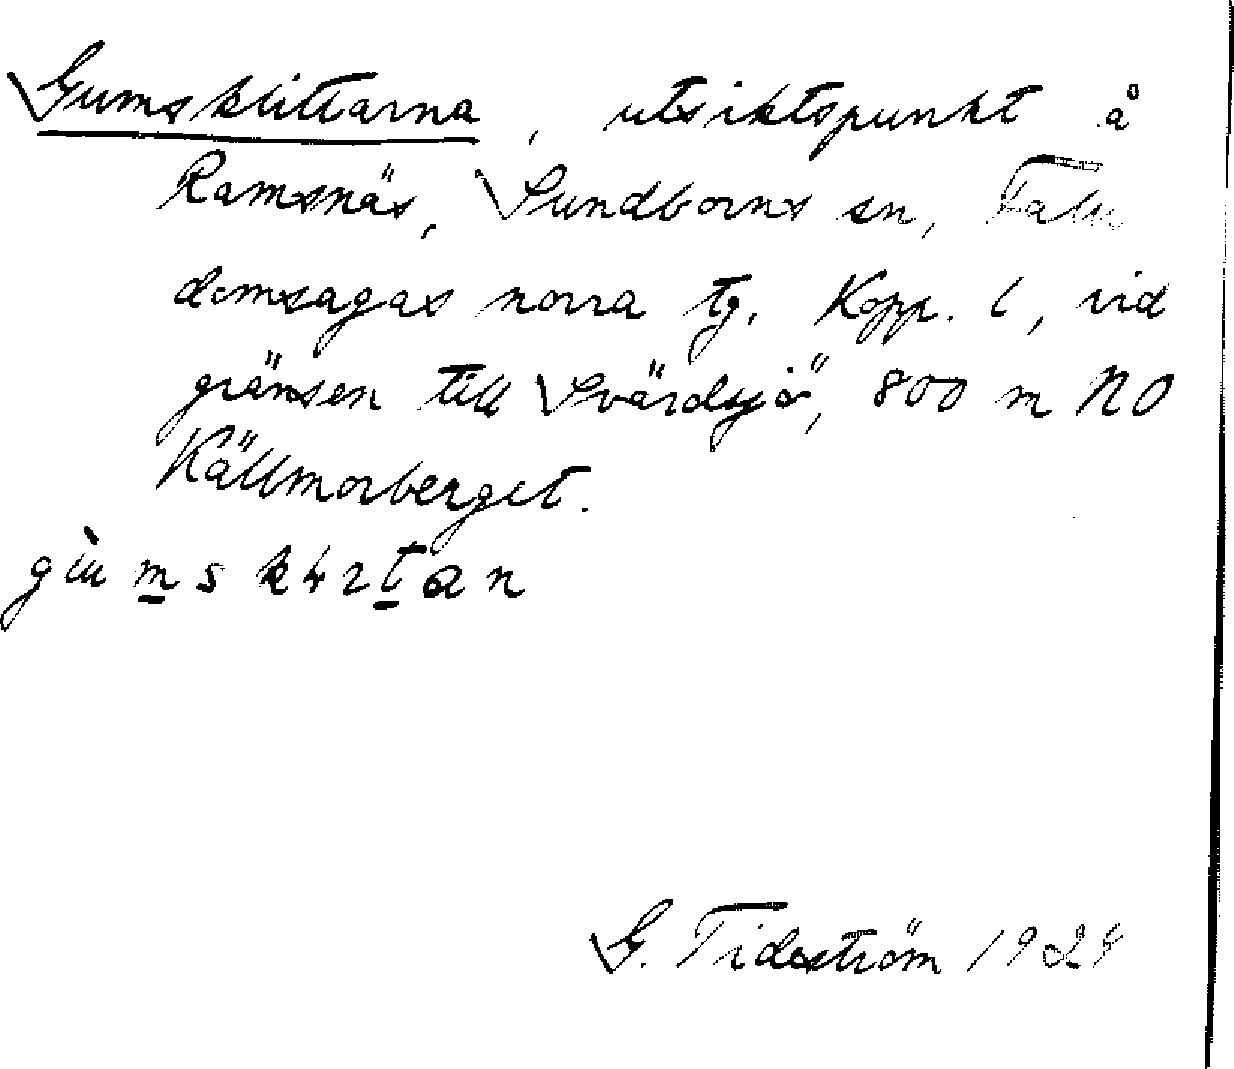 Gumsklittarna, utsiktspunkt å
Ramsnäs, Sundborns sn, Falu
domsagas norra tg. Kopp. l, vid
gränsen till Svärdsjö, 800 m NO
Källmorberget.
G. Tideström 1924